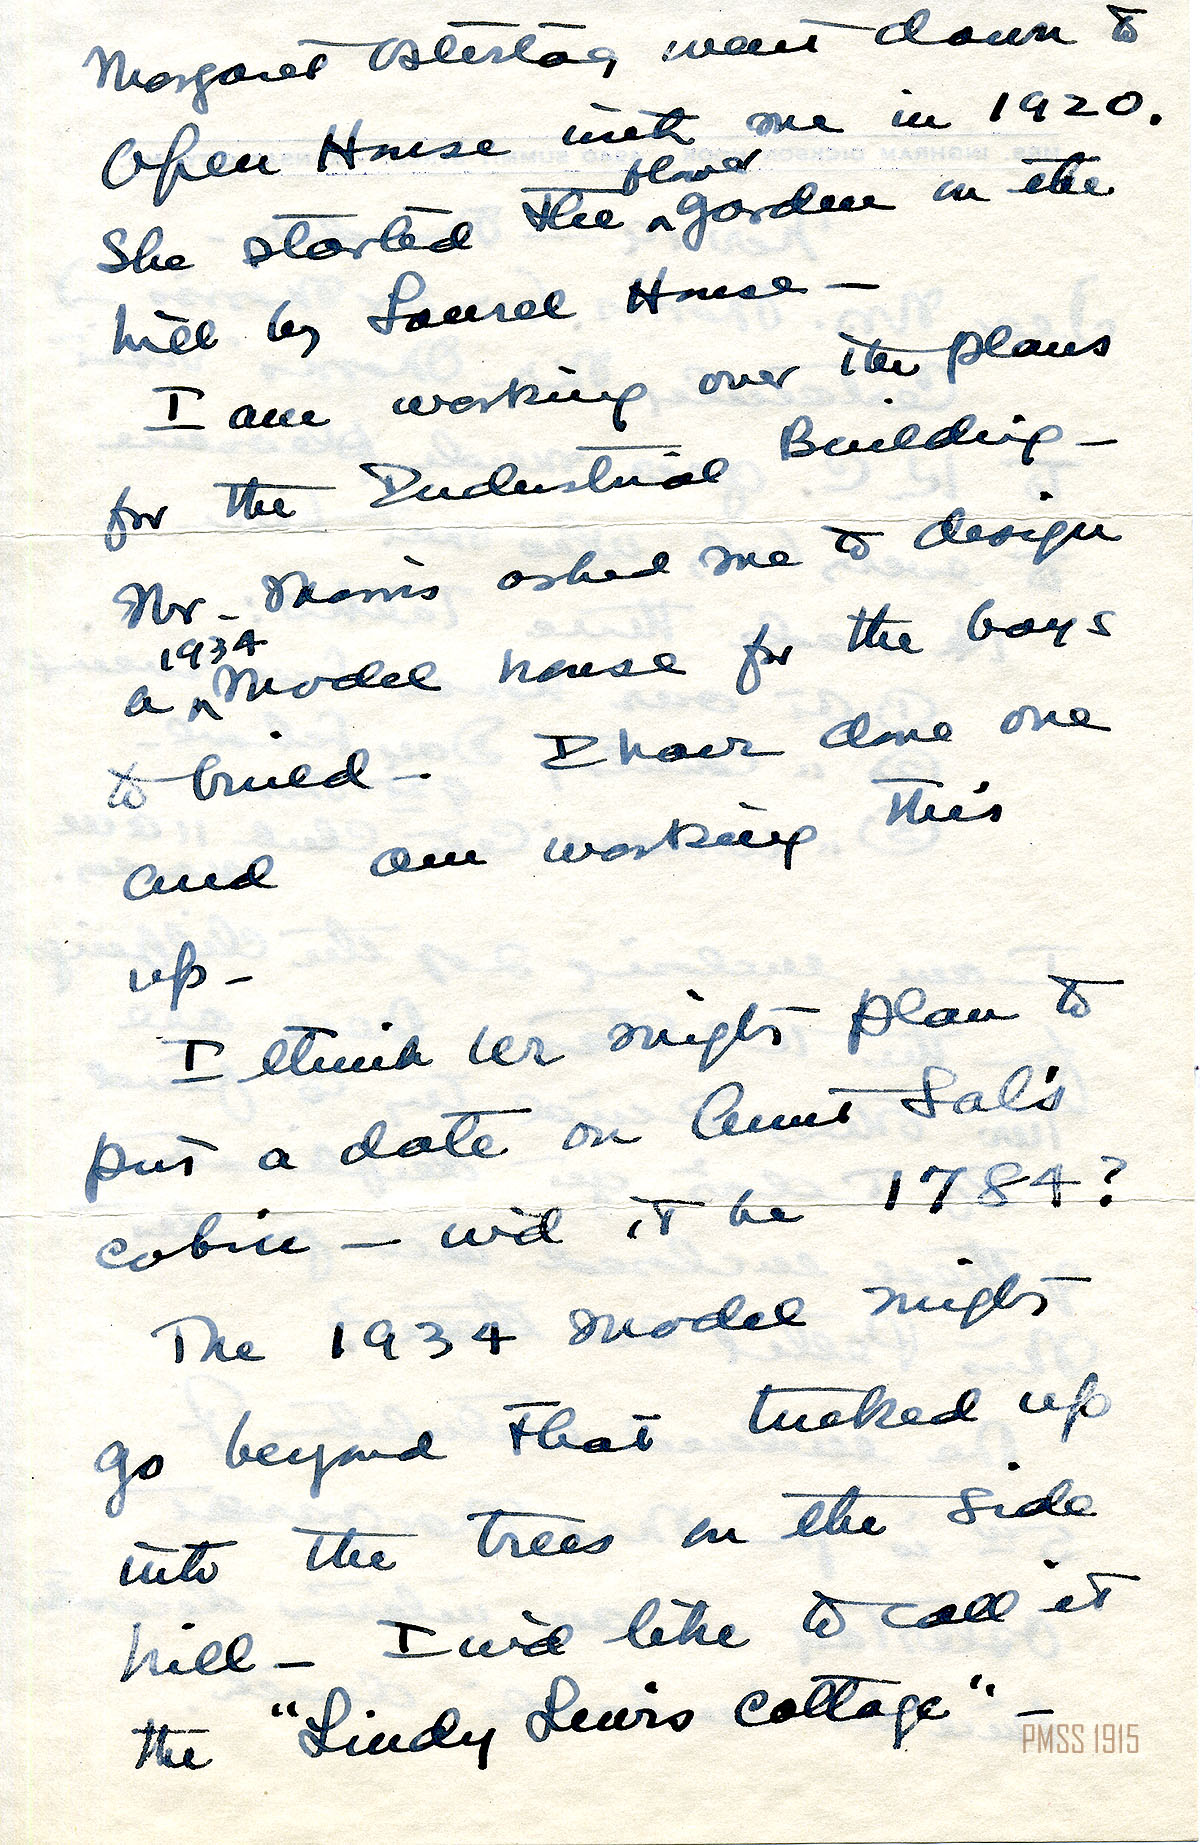 Margaret Ostertag went down to
Open House with me in 1920.
She started the flower garden on the
hill by Laurel House —
I am working over the plans
for the Industrial Building —
Mr. Morris asked me to design
a 1934 Model house for the boys
to build — I have done one
and am working this
up —
I think we might plan to
put a date on Aunt Sal's
cabin — w'd it be 1784?
The 1934 model might
go beyond that tucked up
into the trees on the side
hill — I w'd like to call it
the "Lindy Lewis Cottage" —
PMSS 1915